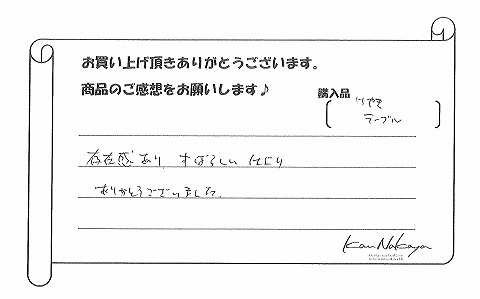 お買い上げ頂きありがとうございます。
商品のご感想をお願いします♪
購入品
けやき
テーブル
存在感あり、すばらしい
ありがとうございました。
Kan Nakaya